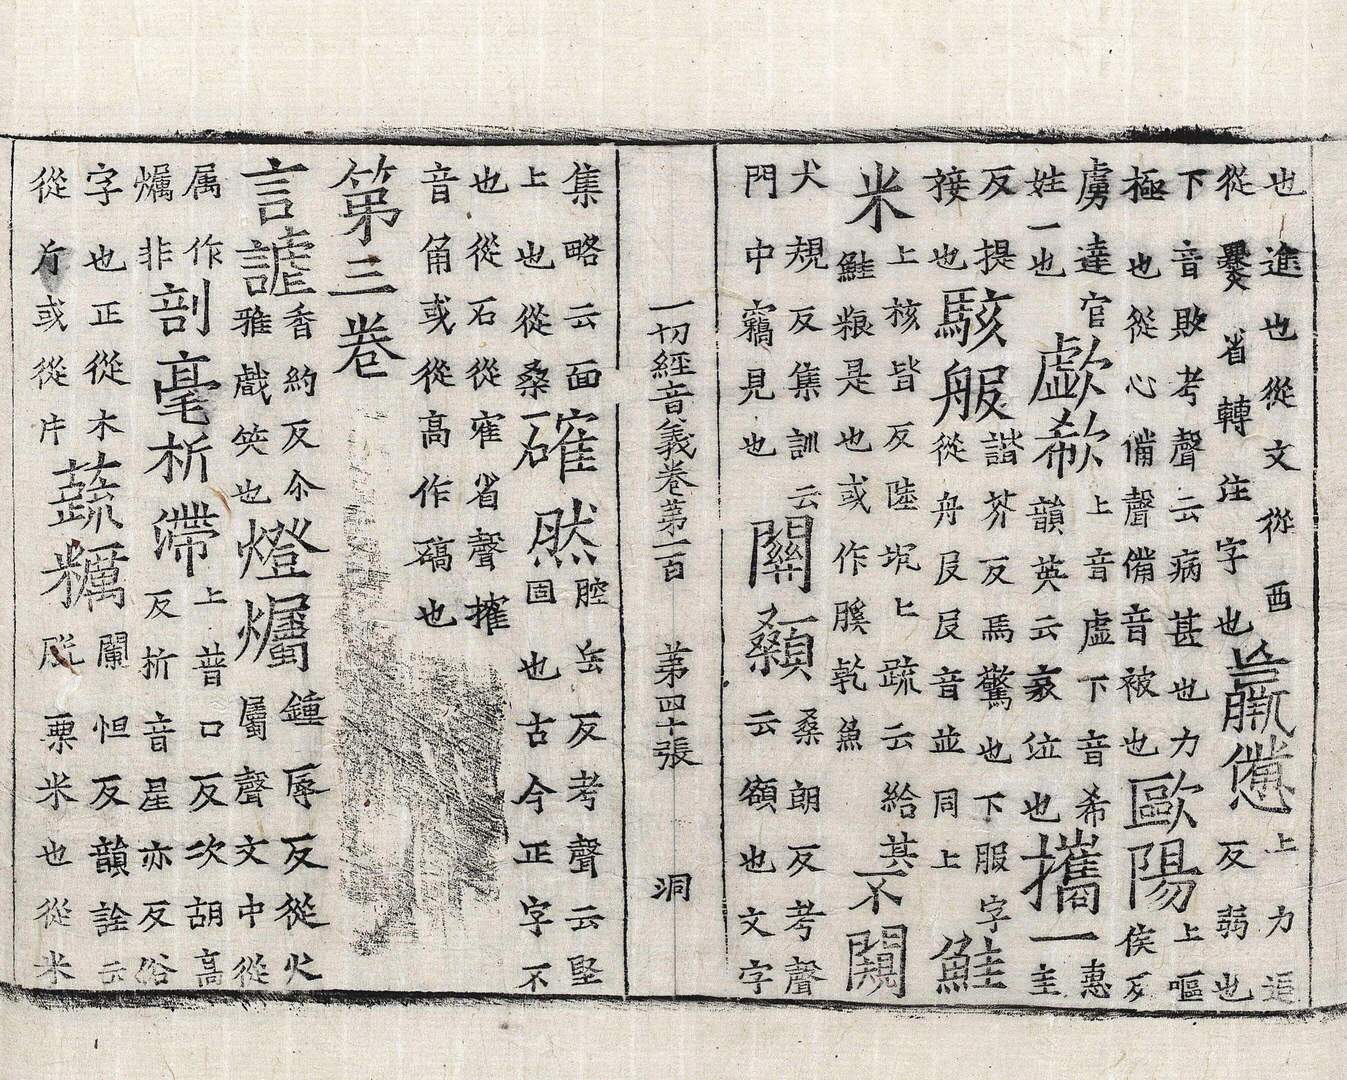 也進也從文從酉
從爨省轉注字也羸瓾憊上力追
下音敗考聲云病甚也力反弱也
極也從心備聲備音被也歐陽上嘔
虜達官歔欷上音虛下音希侯反
姓一也韻英云哀泣也攜一惠
反提駭服諧芥反馬驚也下服字圭
接也從舟𠬝𠬝音並同上鮭
米上核皆反陸㘬上疏云給其不闚
鮭粮是也或作膎乾魚
犬規反集訓云䦨顙桑朗反考聲
門中竊見也云額也文字
一切經音義卷第一百 第四十張 洞
集略云面確然腔岳反考聲云堅
上也從桑固也古今正字不
也從石從寉省聲搉
音角或從高作碻也
第三卷
言謔香約反尒燈爥鍾辱反從火
雅戲笑也屬聲文中從
属作剖毫析滯上普口反次胡高
爥非反析音星亦反俗
字也正從木蔬糲闌怛反韻詮云
從斤或從片脫粟米也從米